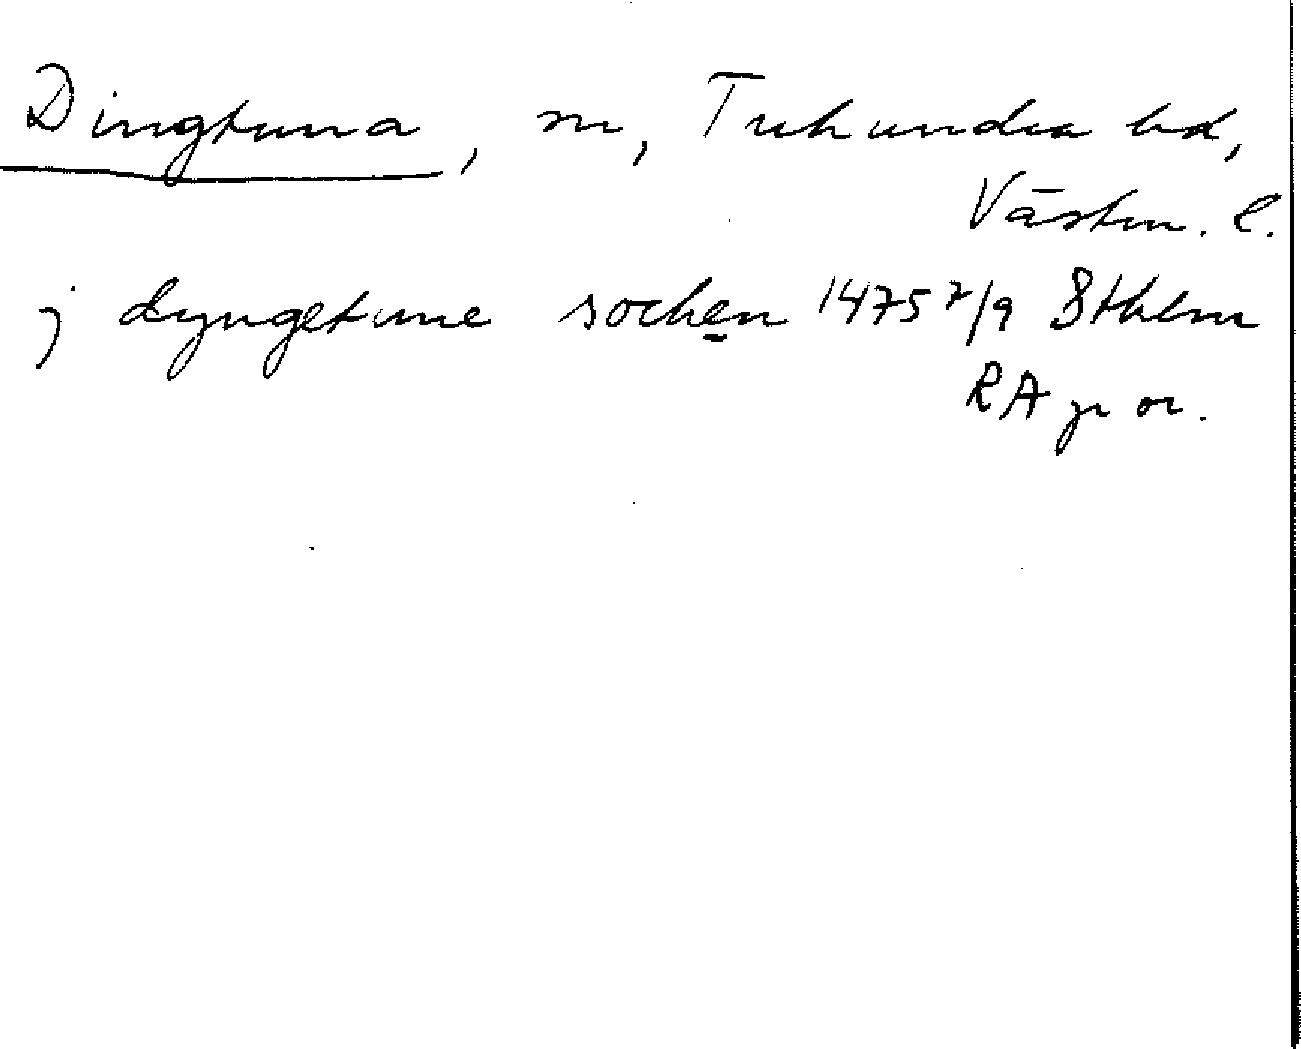 Dingtuna, sn, Tuhundra hd,
Västm. l.
j dyngetune sochen 1475 7/9 Sthlm
RA p or.